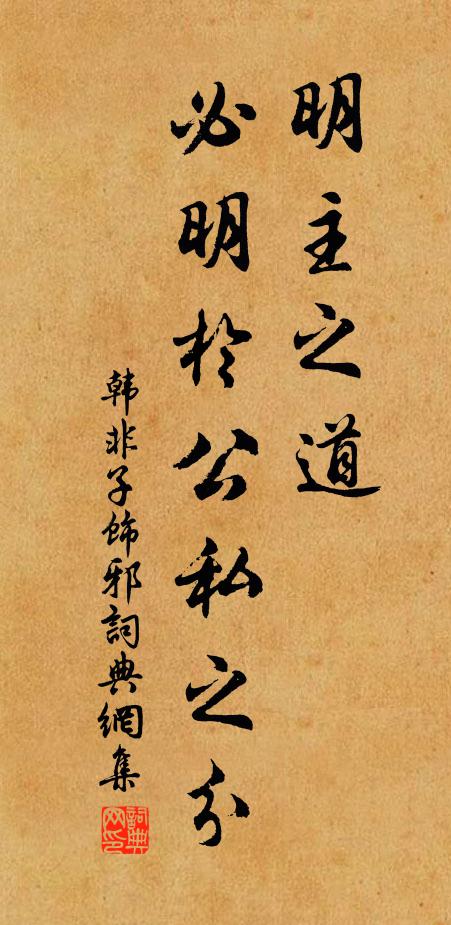 明主之道
必明於公私之分
韩非子飾邪詞典網集
詞典网印